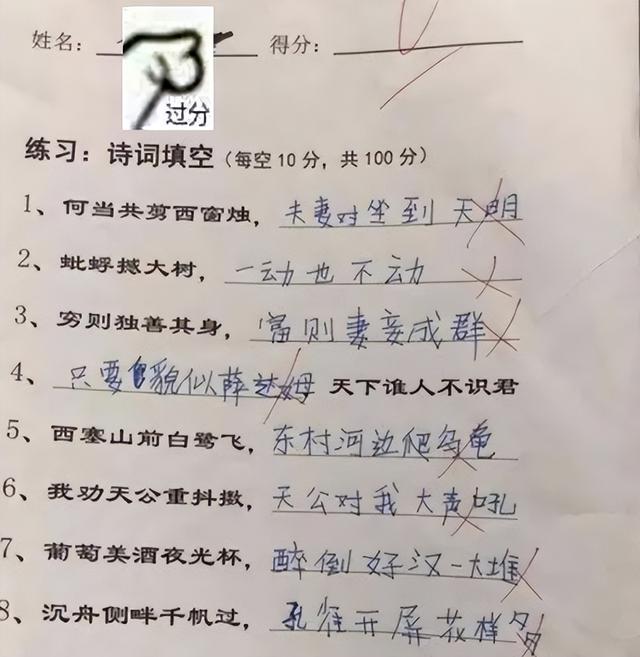 姓名： 得分：
过分
练习：诗词填空（每空10分，共100分）
1、何当共剪西窗烛，夫妻对坐到天明
2、蚍蜉撼大树，一动也不动
3、穷则独善其身，富则妻妾成群
4、只要貌似薛达姆 天下谁人不识君
5、西塞山前白鹭飞，东村河边爬乌龟
6、我劝天公重抖擞，天公对我大声吼
7、葡萄美酒夜光杯，醉倒好汉一大堆
8、沉舟侧畔千帆过，孔雀开屏花样多